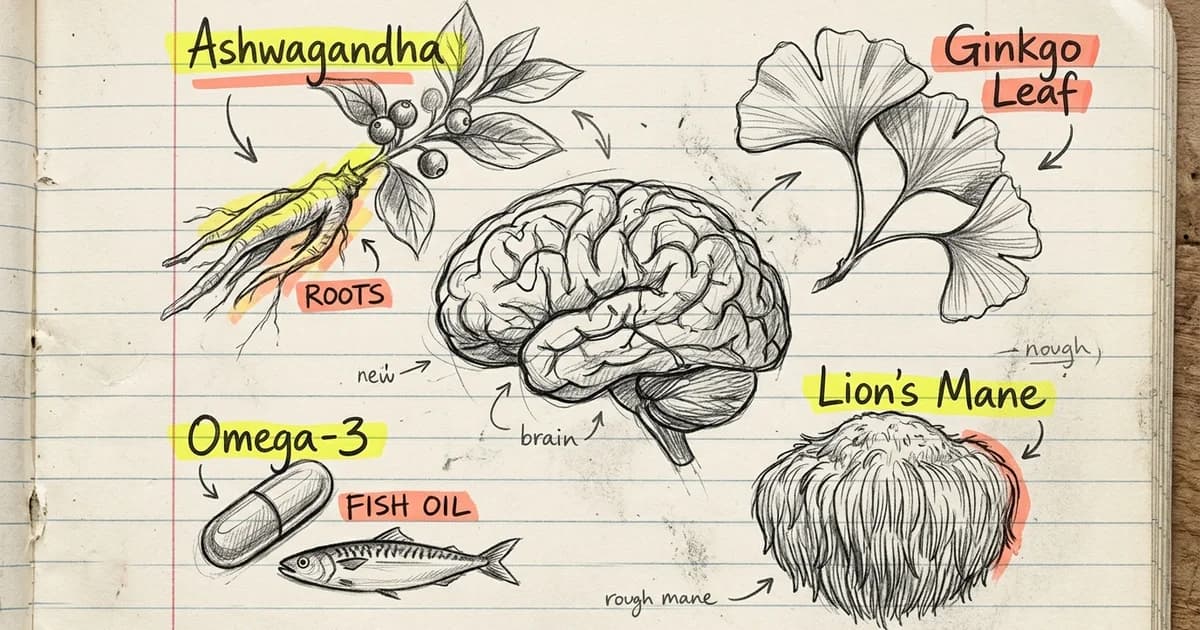 Ashwagandha
Ginkgo
Leaf
ROOTS
nough,
new
Lion's Mane
Omega-3
brain
FISH OIL
rough mane